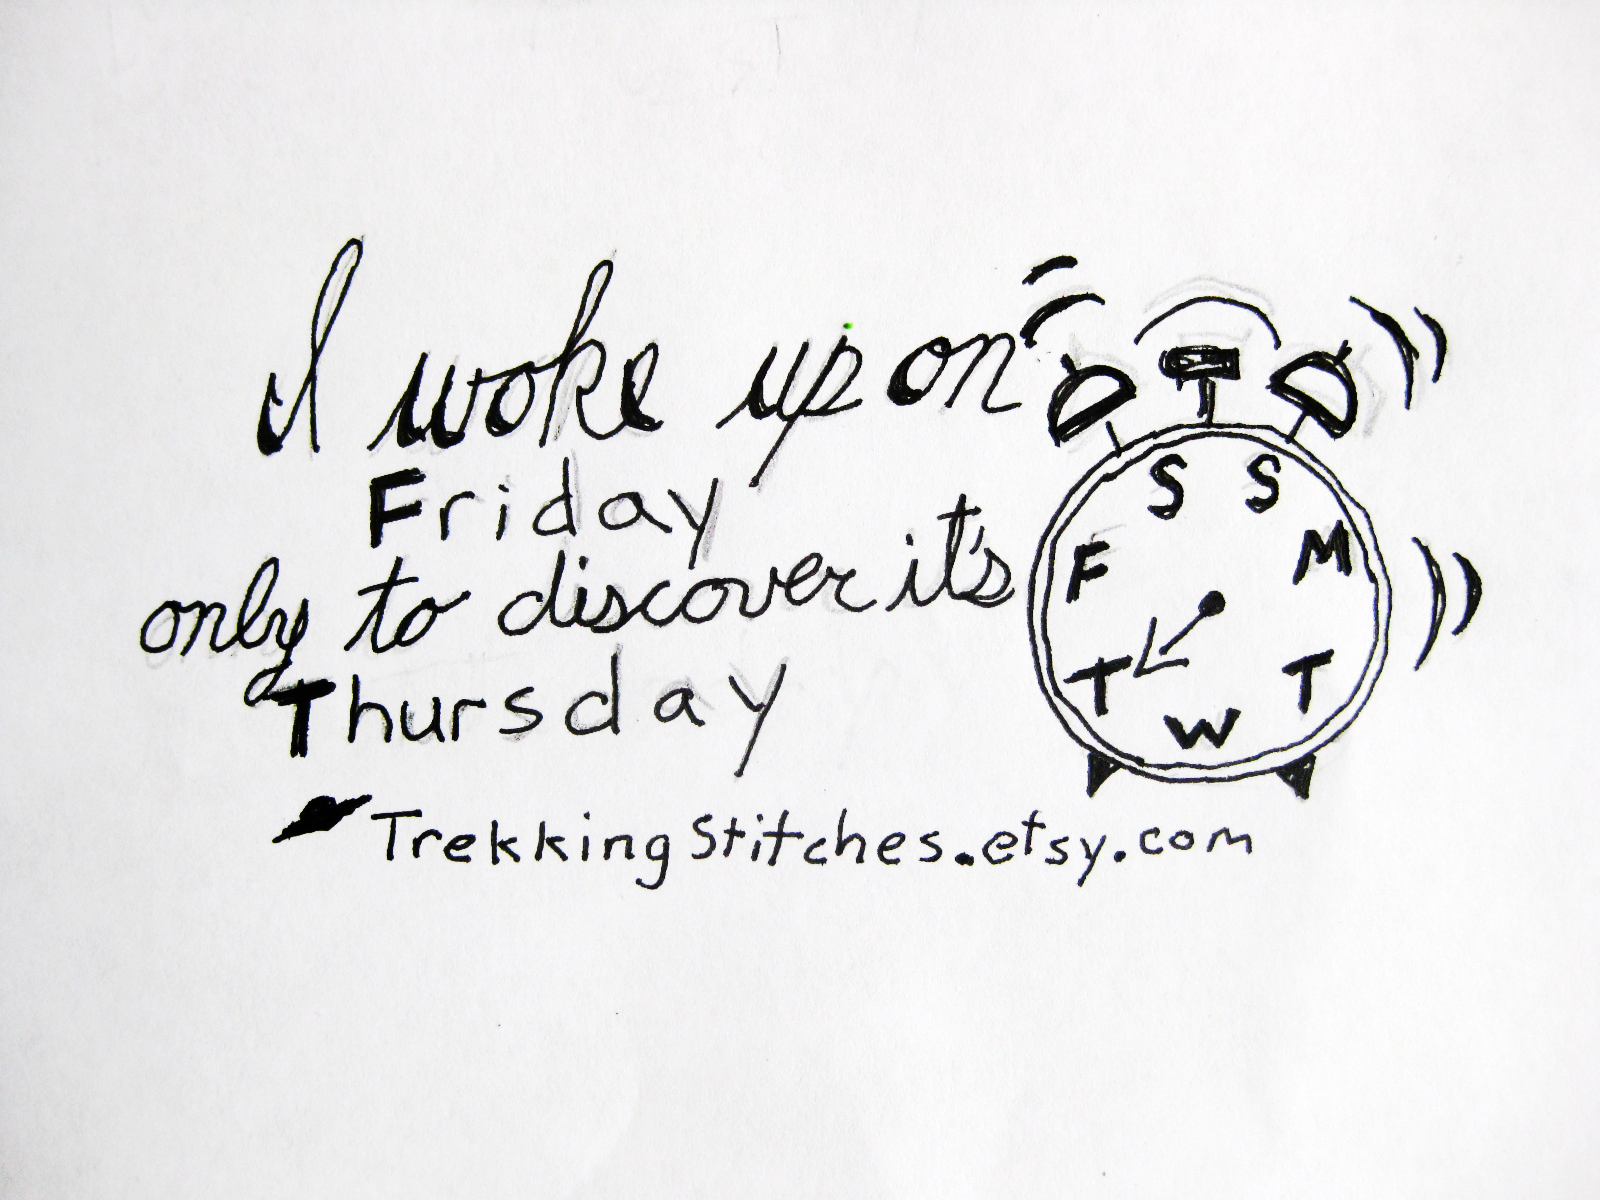 I woke up on
Friday
only to discover it's
Thursday
TrekkingStitches.etsy.com
S S
F M
T T
W